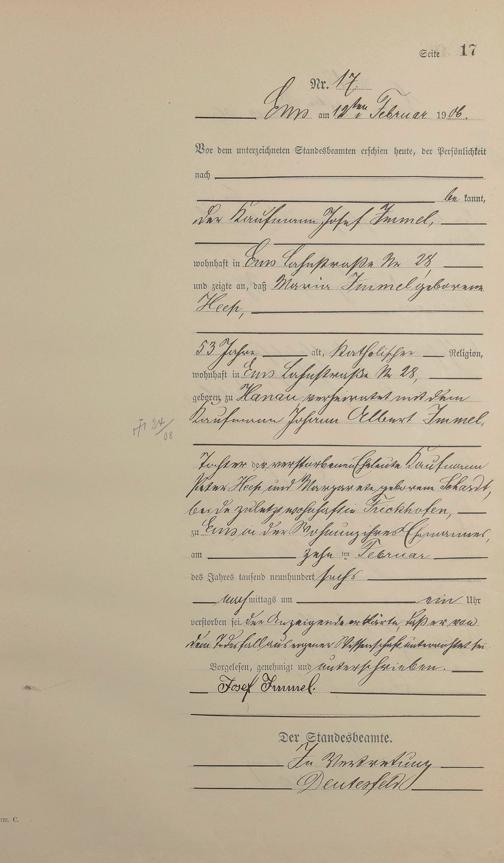 Seite 17
Nr. 17
Ems am 12ten Februar 1906.
Vor dem unterzeichneten Standesbeamten erschien heute, der Persönlichkeit
nach
be kannt,
der Kaufmann Josef Immel,
wohnhaft in Ems Lahnstraße Nr 28,
und zeigte an, daß Maria Immel geborene
Heep,
53 Jahre alt, katholischer Religion,
wohnhaft in Ems Lahnstraße Nr 28,
geboren zu Hanau verheiratet mit dem
Kaufmann Johann Albert Immel,
24/08
Tochter der verstorbenen Eheleute Kaufmann
Peter Heep und Margarete geborene
beide zuletzt wohnhaft in Frickhofen,
zu Ems in der Wohnung ihres Ehemannes,
am zehn ten Februar
des Jahres tausend neunhundert sechs
nachmittags um ein Uhr
verstorben sei. der Anzeigende erklärte, daß er von
dem Todesfall aus eigener Wissenschaft unterrichtet sei
Vorgelesen, genehmigt und unterschrieben.
Josef Immel.
Der Standesbeamte.
In Vertretung
C.